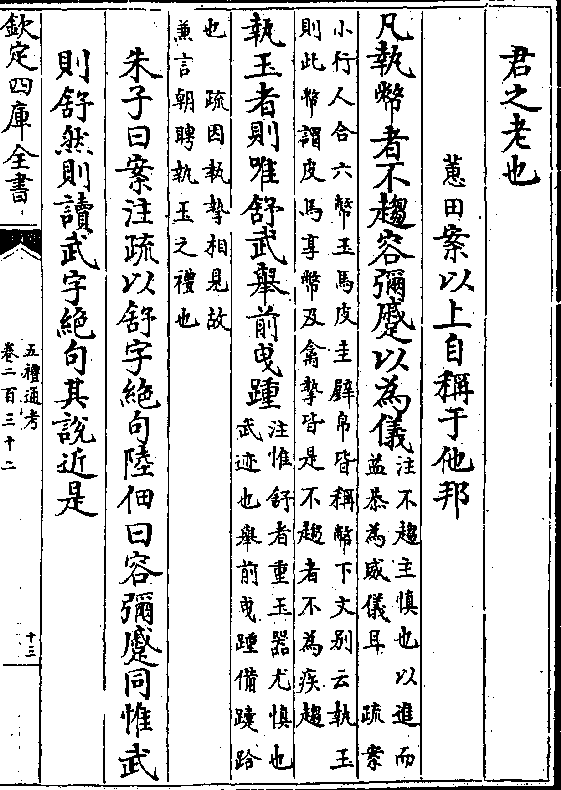 君之老也
蕙田案以上自稱于他邦
凡執幣者不趨容彌蹙以為儀
注不趨主慎也以進而
益恭為威儀耳 疏案
小行人合六幣玉馬皮圭璧帛皆稱幣下文别云執玉
則此幣謂皮馬享幣及禽摯皆是不趨者不為疾趨
執玉者則唯舒武舉前曳踵
注惟舒者重玉器尤慎也
武迹也舉前曳踵備跲
也 疏因執摯相見故
兼言朝聘執玉之禮也
朱子曰案注疏以舒字絶句陸佃曰容彌蹙同惟武
則舒然則讀武字絶句其說近是
欽定四庫全書
五禮通考
卷二百三十二
十三